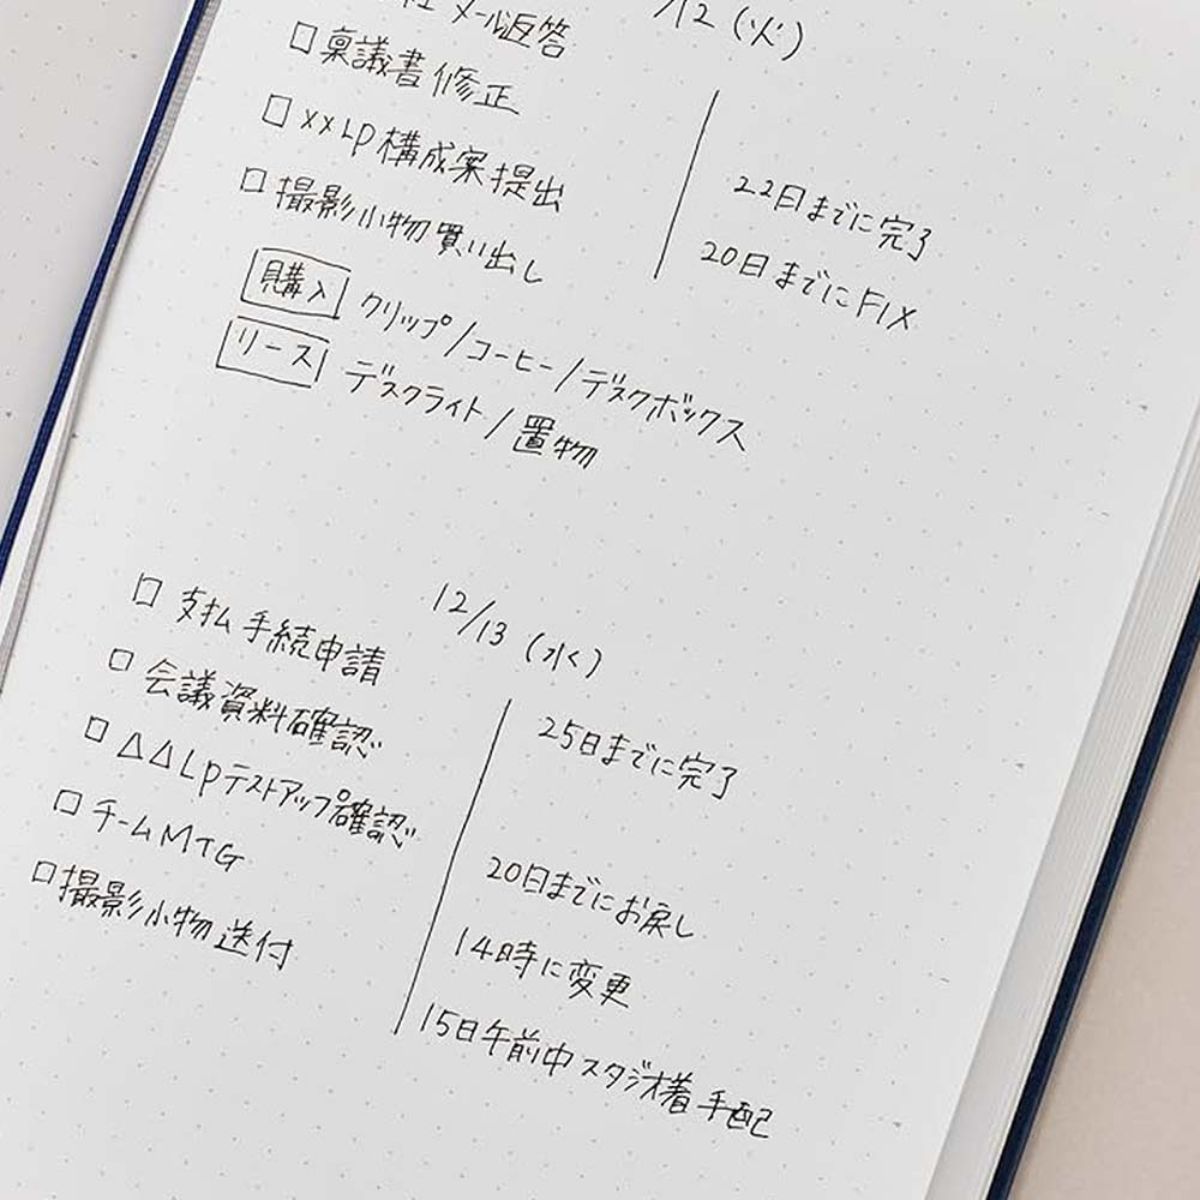 /12（火）
メール返答
□ 稟議書修正
□ ××LP構成案提出
22日までに完了
□ 撮影小物買い出し
20日までにFIX
購入 クリップ/コーヒー/デスクボックス
リース デスクライト/置物
12/13（水）
□ 支払手続申請
25日までに完了
□ 会議資料確認
□ △△LPテストアップ確認
20日までにお戻し
□ チームMTG
14時に変更
□ 撮影小物送付
15日午前中スタジオ着手配